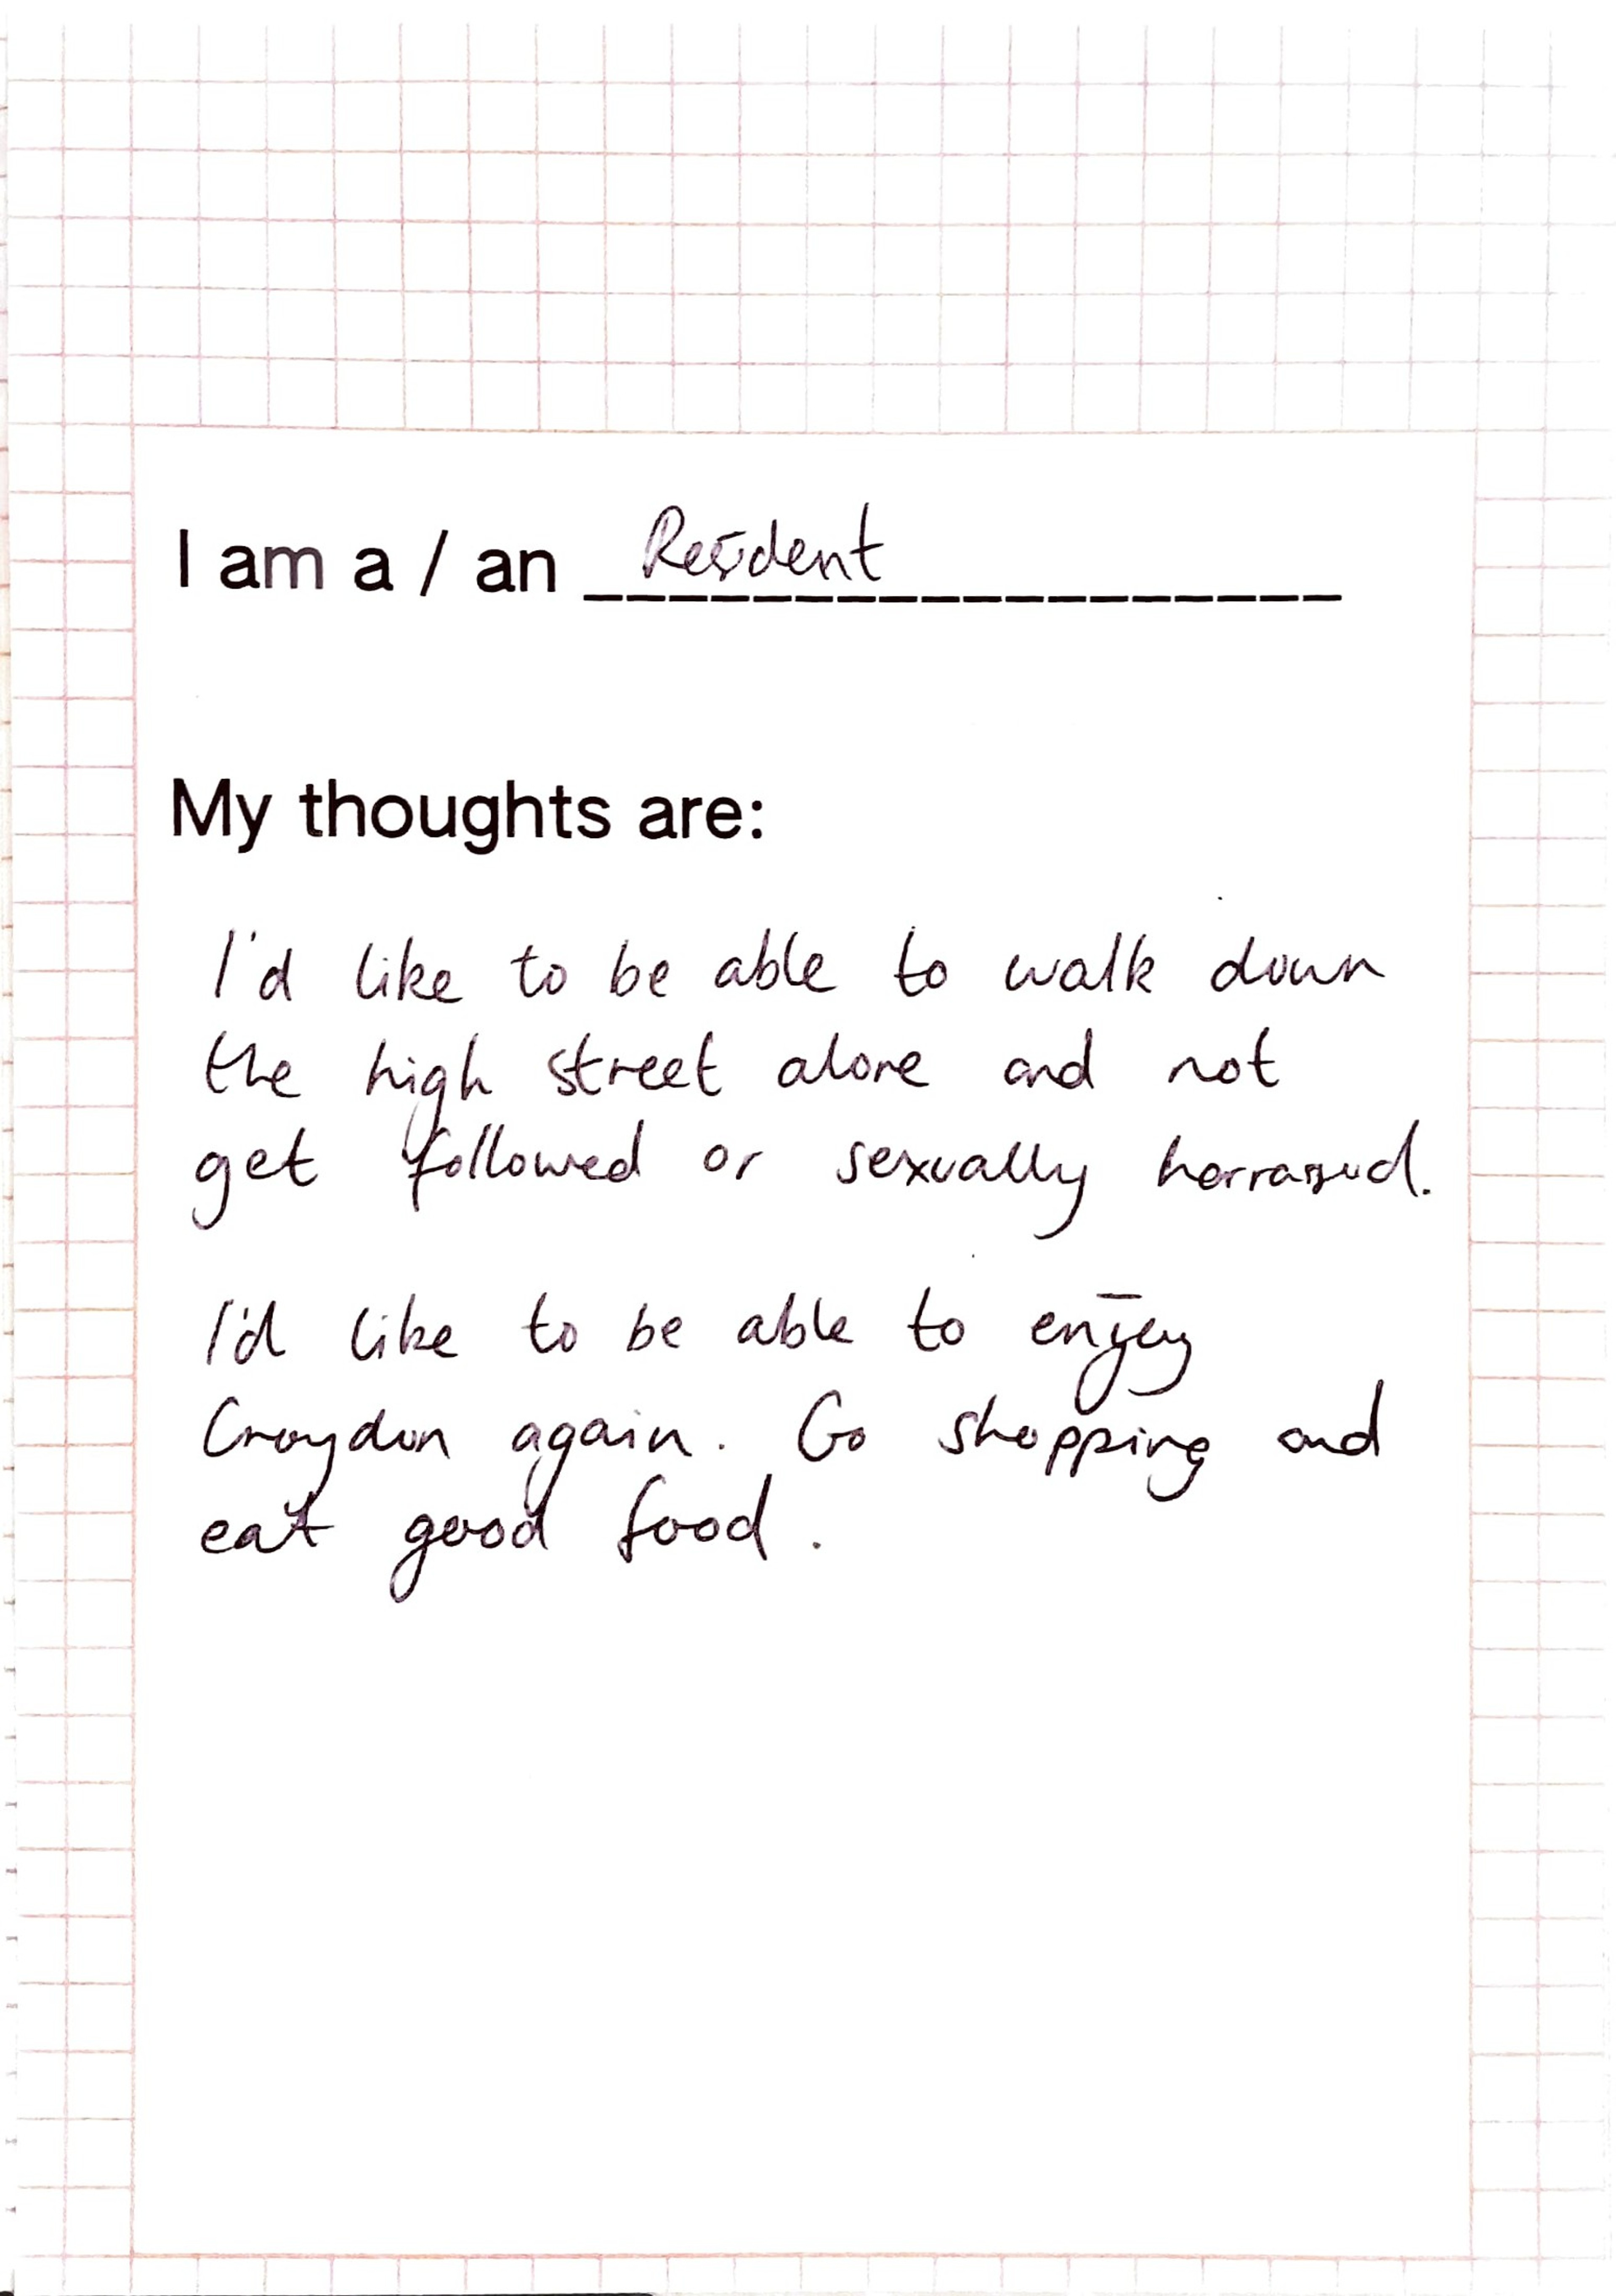 I am a / an Resident
My thoughts are:
I'd like to be able to walk down
the high street alone and not
get followed or sexually harrased.
I'd like to be able to enjoy
Croydon again. Go shopping and
eat good food.